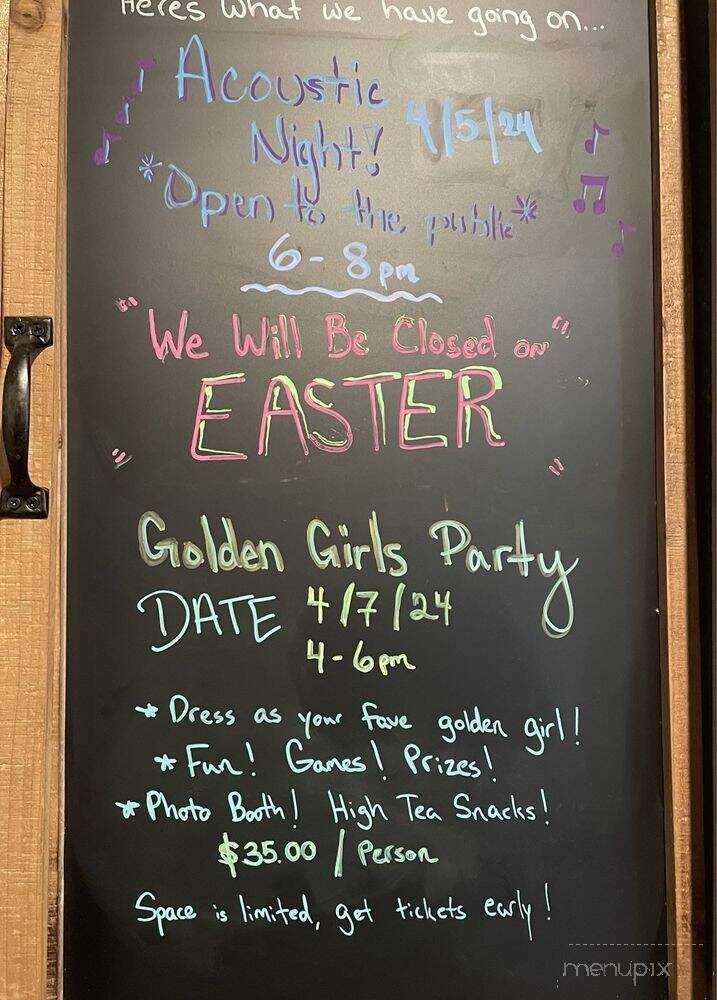 Heres what we have going on...
Acoustic
Night! 4/5/24
*Open to the public*
6-8pm
"We Will Be Closed on"
"EASTER"
Golden Girls Party
DATE 4/7/24
4-6pm
* Dress as your fave golden girl!
* Fun! Games! Prizes!
* Photo Booth! High Tea Snacks!
$35.00 / Person
Space is limited, get tickets early!
menupix